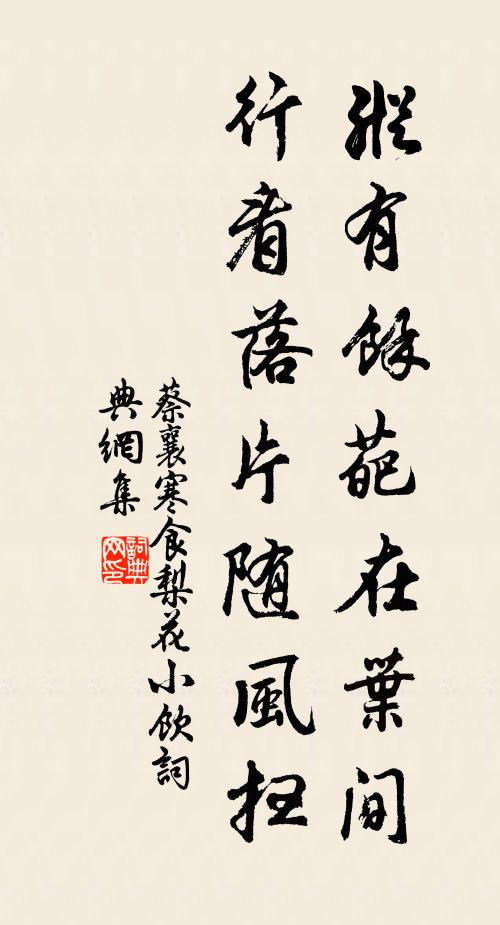 縱有餘葩在葉間
行看落片随風
蔡襄寒食梨花小飲詞
典網集
詞典
网印